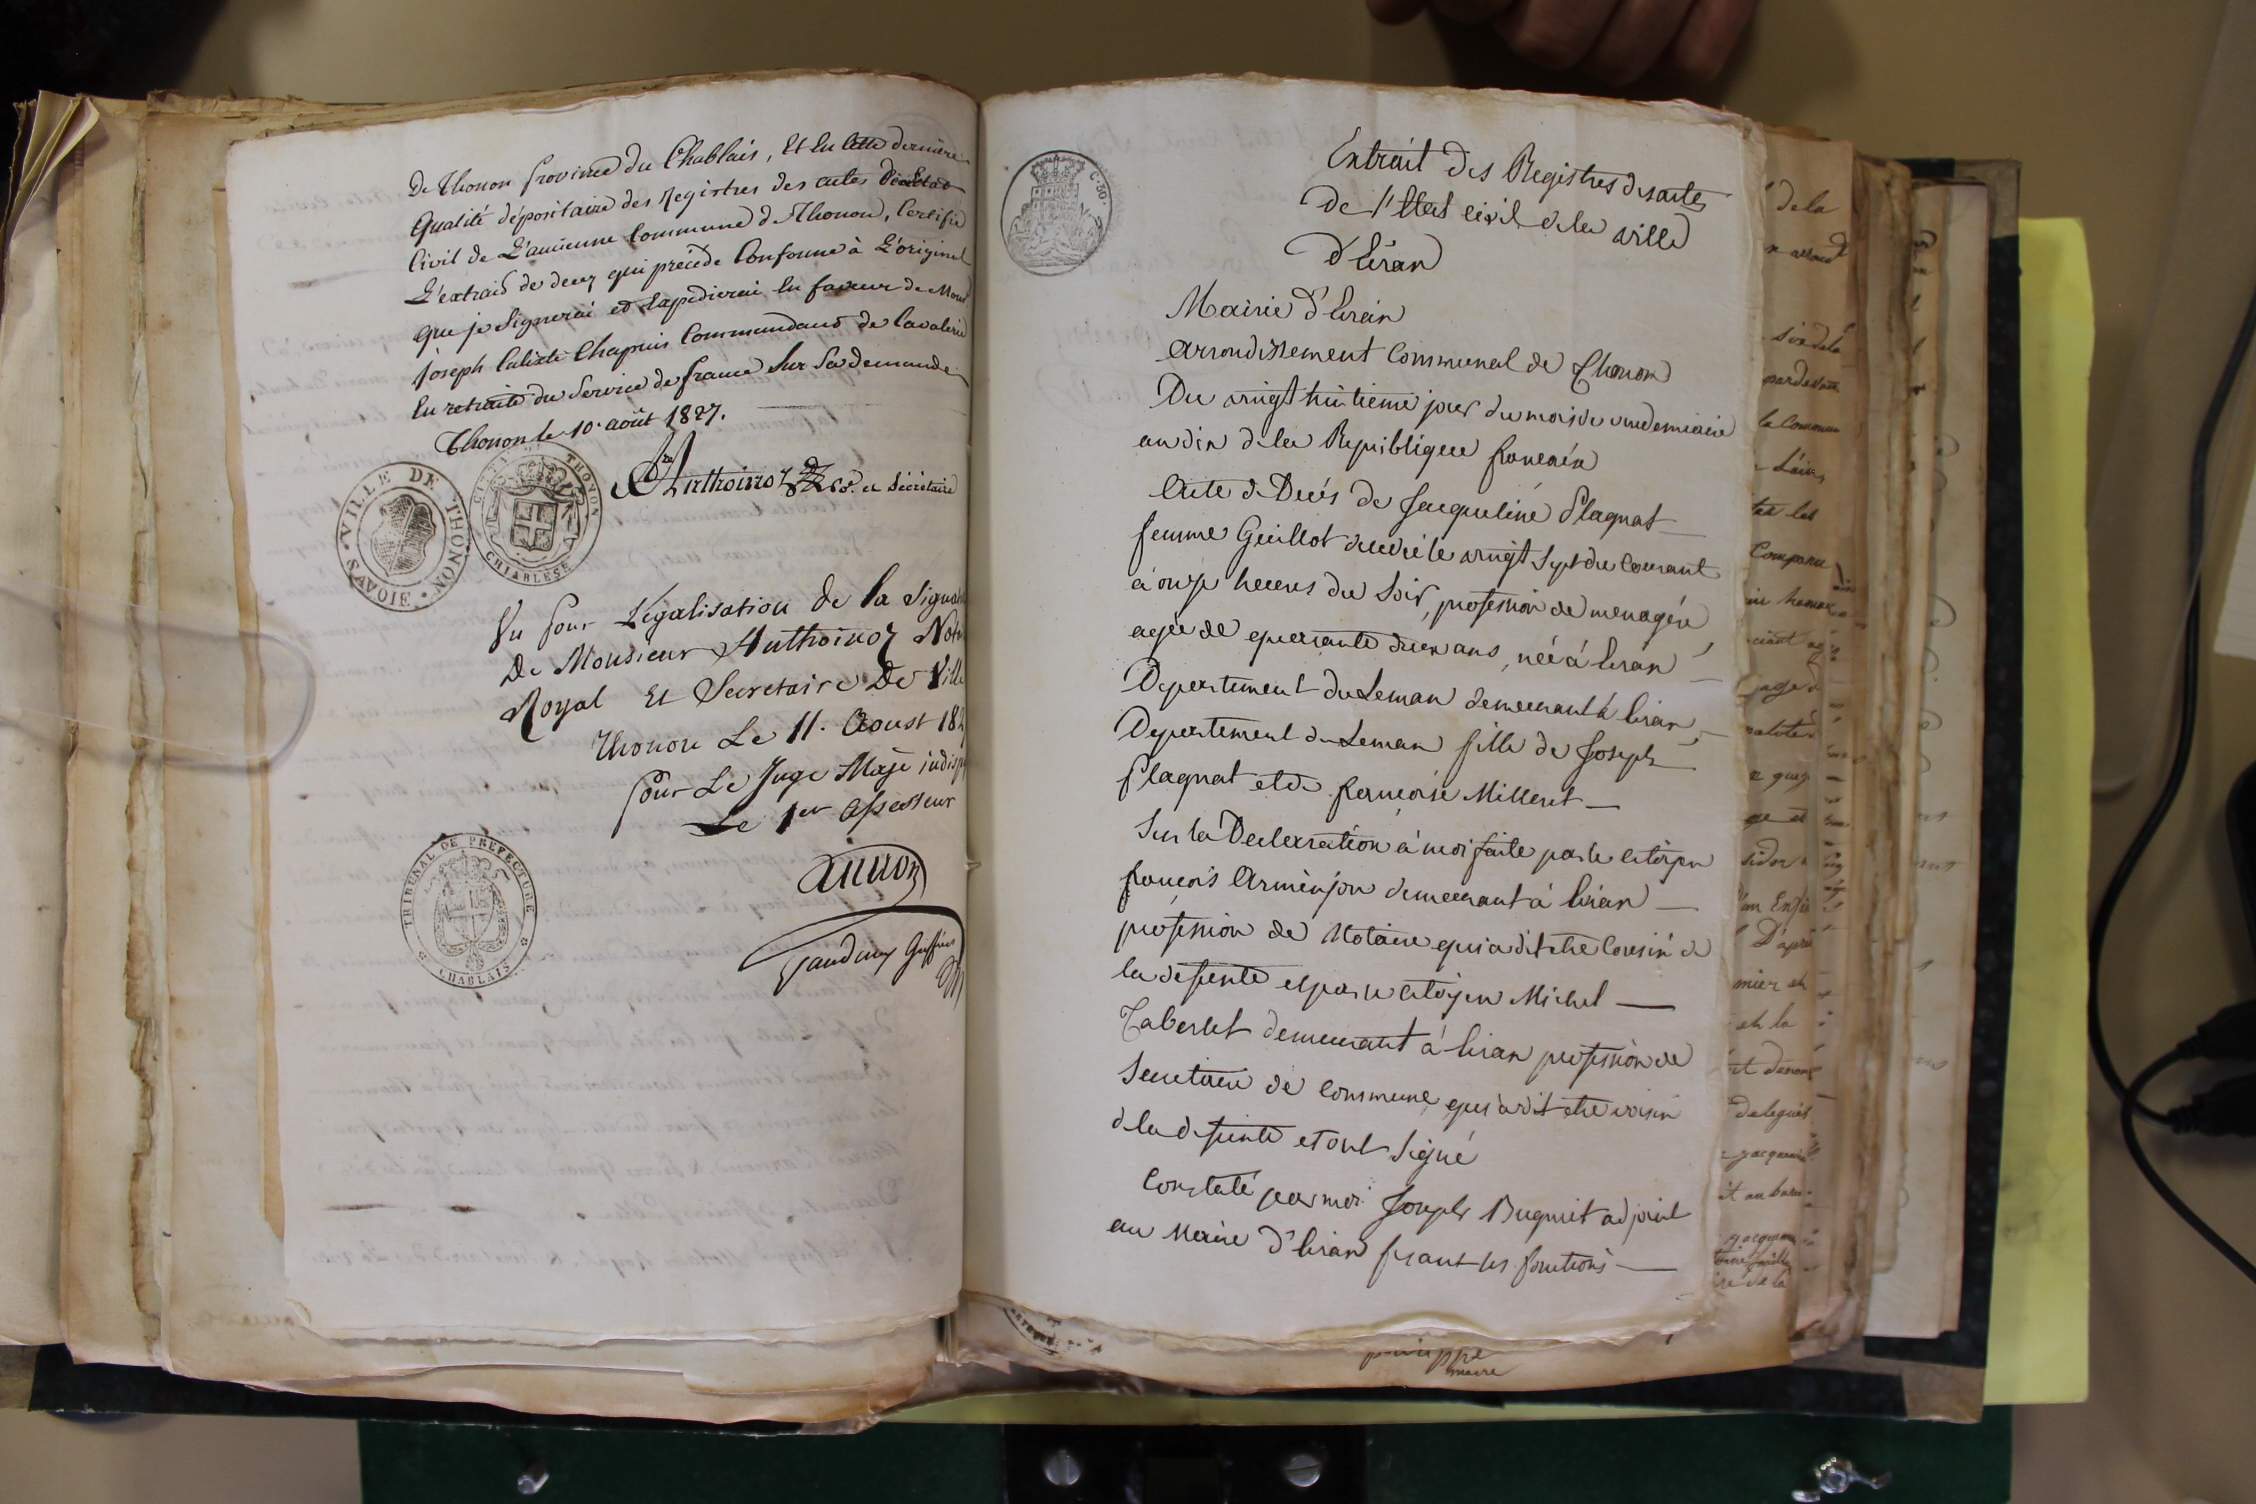 De Thonon province du Chablais, Et En Cette dernière
Qualité dépositaire des Registres des actes De L'etat
Civil de L'ancienne Commune de Thonon, Certifie
L'extrait de deces qui précède Conforme à L'original
que je Signerai et Expedierai En faveur de Mons
joseph Calixte Chapuis Commandant de Cavalerie
En retraite du Service de france Sur Sa demande
Thonon le 10. août 1827.
Anthoinoz et Sécrétaire
VILLE DE THONON
SAVOIE
THONON
CHIABLESE
Vu pour Légalisation de la Signat
De Monsieur Anthoinoz Not
Royal Et Secretaire De Ville
Thonon Le 11. Aoust 18
pour Le Juge Maje indisp
Le 1er Assesseur
TRIBUNAL DE PREFECTURE
CHABLAIS
Extrait des Registres des actes
De l'Etat civil de la ville
d'Evian
C. 30.
Mairie d'Evian
arrondissement Communal de Thonon
Du vingt huitieme jour du mois de vendemiaire
an dix de la Republique francaise
Acte de Décés de Jacqueline Plagnat
femme Guillot decedée le vingt Sept du Courant
à onze heures du Soir, profession de menagére
agée de quarante deux ans, née à Evian
Departement du Leman demeurant à Evian
Departement du Leman fille de Joseph
Plagnat et de francoise Milleret
Sur la Declaration à moi faite par le citoyen
francois Armínjon demeurant à Evian
profession de Notaire qui a dit etre Cousin de
la defunte et par le citoyen Michel
Taberlet demeurant à Evian profession de
Secretaire de Commune qui a dit etre voisin
de la defunte et ont Signé
Constaté par moi Joseph Bugniet adjoint
au Maire d'Evian fesant les fonctions
de la
par devant
la Commun
tes les
Comparu
mier et
et la
philippe
maire